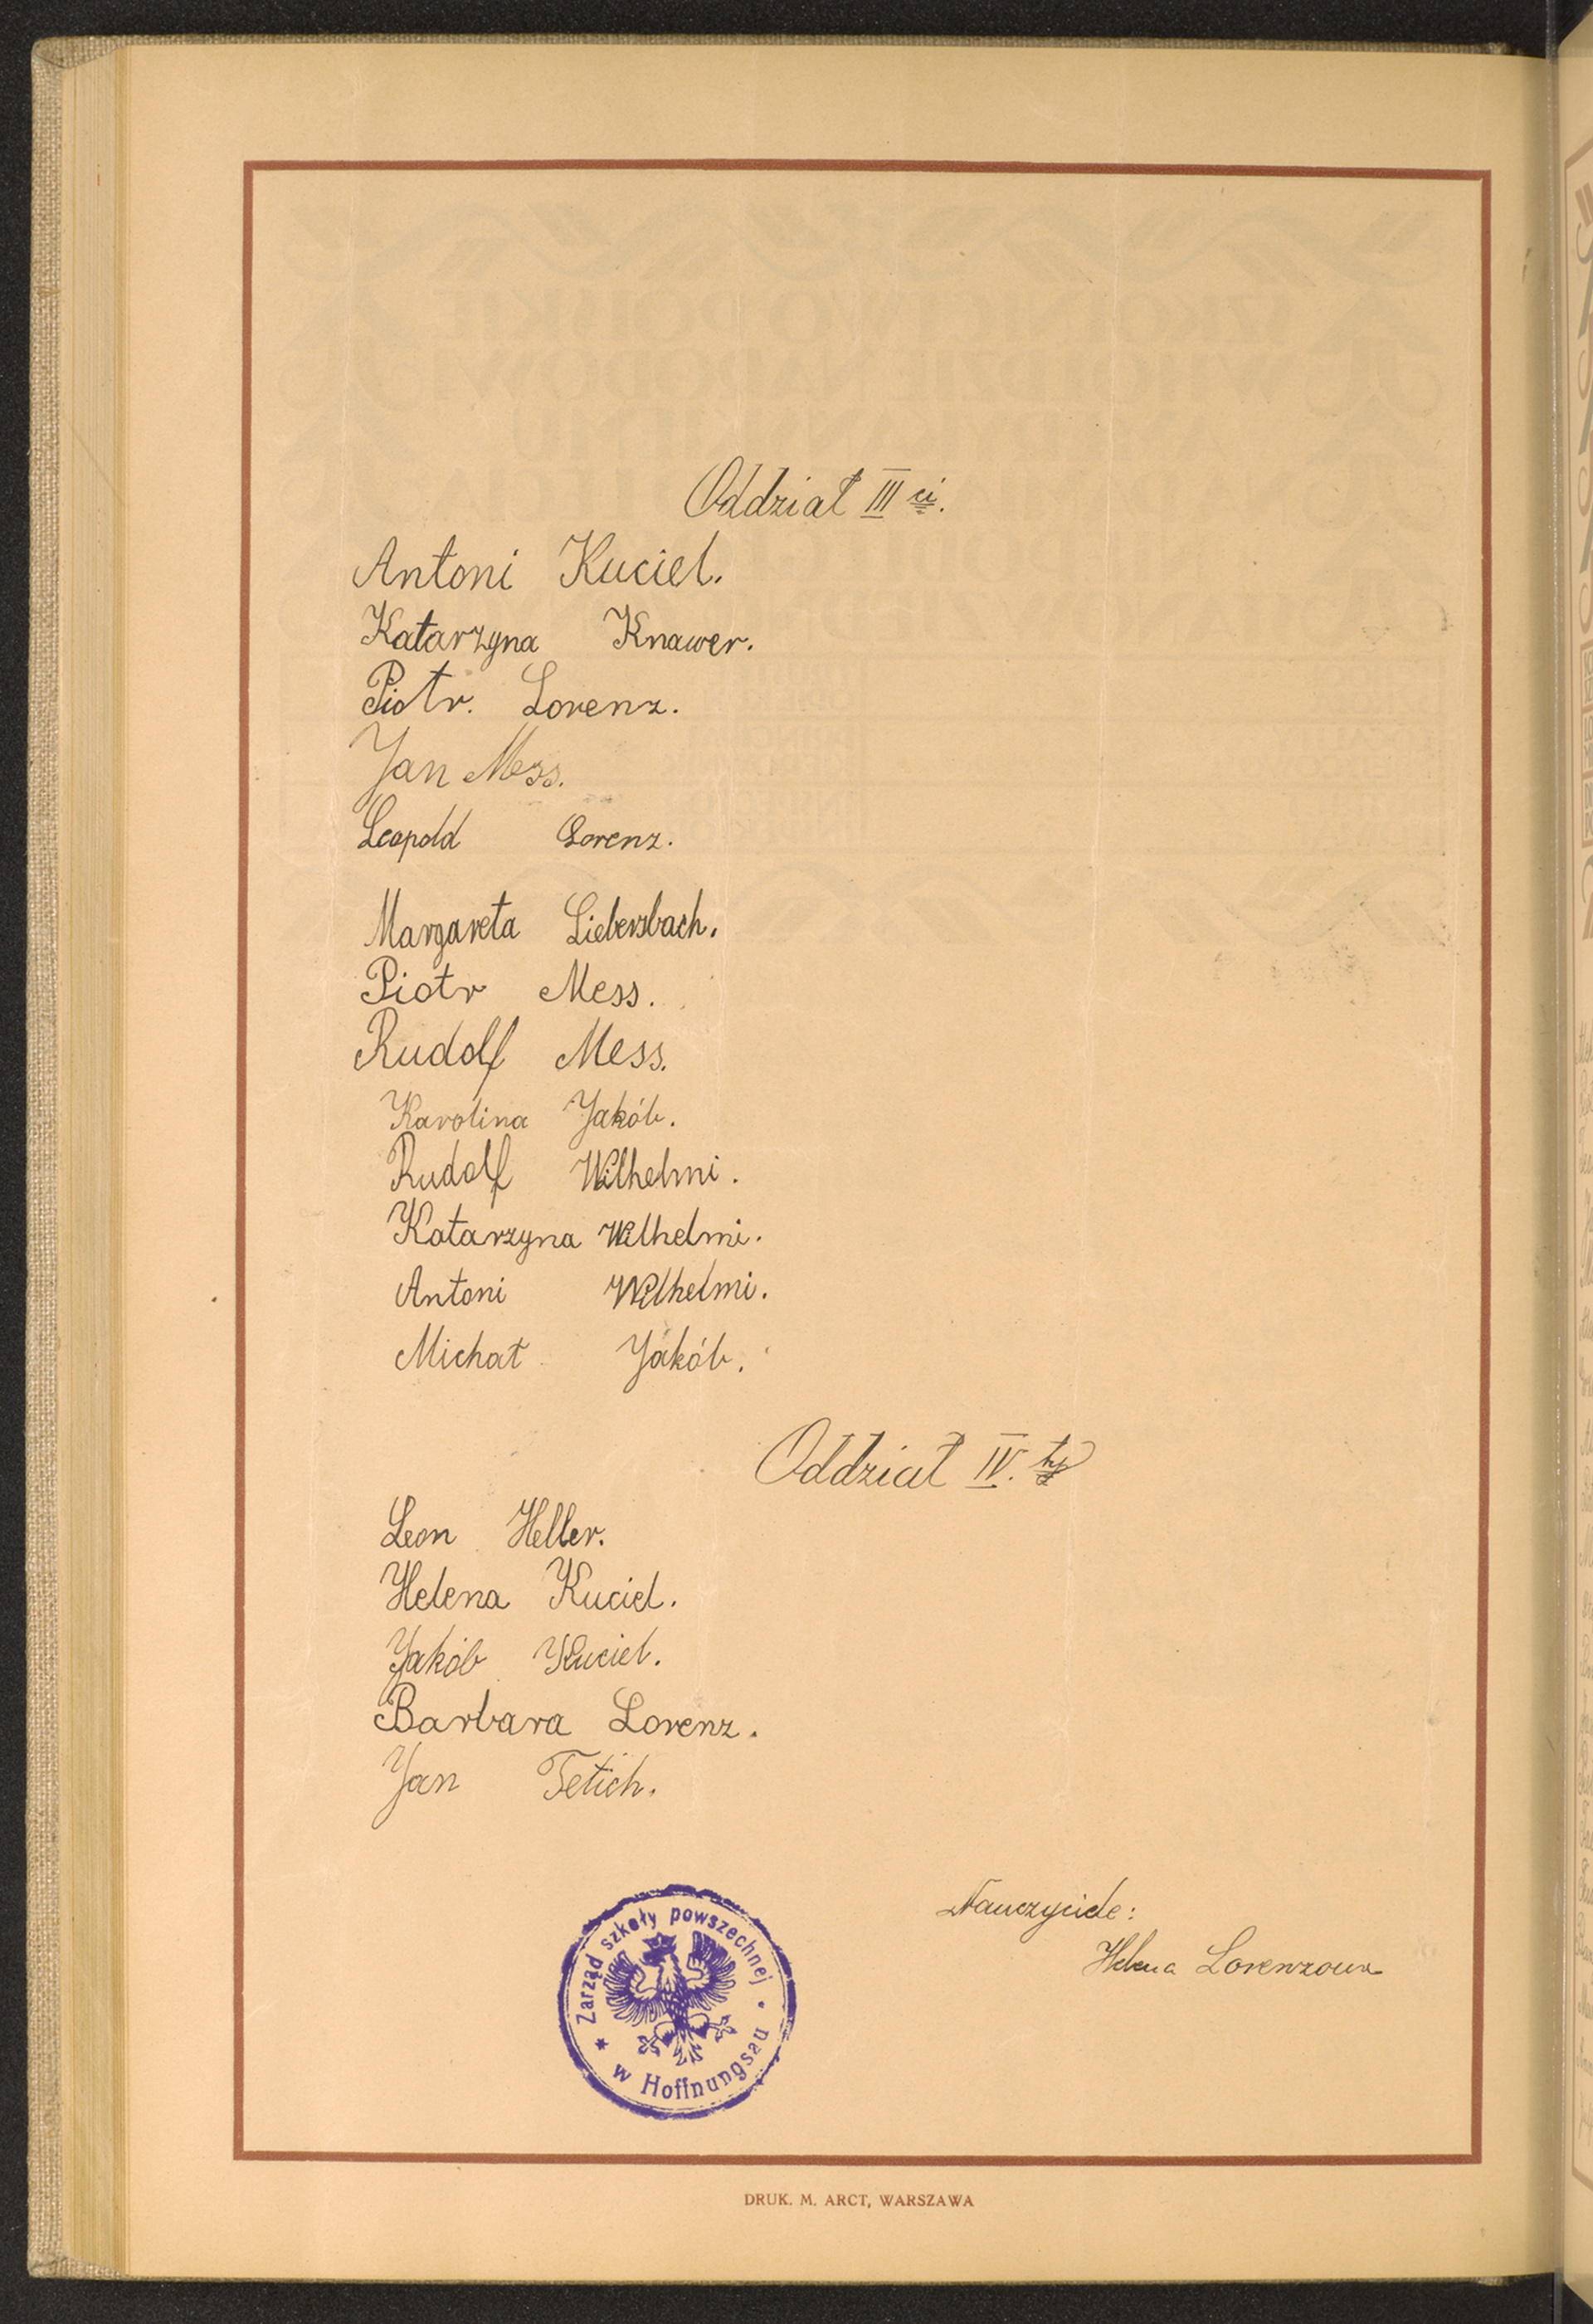 Oddział III ci.
Antoni Kuciel.
Katarzyna Knawer.
Piotr. Lorenz.
Jan Mess.
Leopold Lorenz.
Margareta Liebersbach.
Piotr Mess.
Rudolf Mess.
Karolina Jakób.
Rudolf Wilhelmi.
Katarzyna Wilhelmi.
Antoni Wilhelmi.
Michał Jakób.
Oddział IV. ty
Leon Heller.
Helena Kuciel.
Jakób Kuciel.
Barbara Lorenz.
Jan Tetich.
Nauczyciele:
Helena Lorenzowa
Zarząd szkoły powszechnej
w Hoffnungsau
DRUK. M. ARCT, WARSZAWA